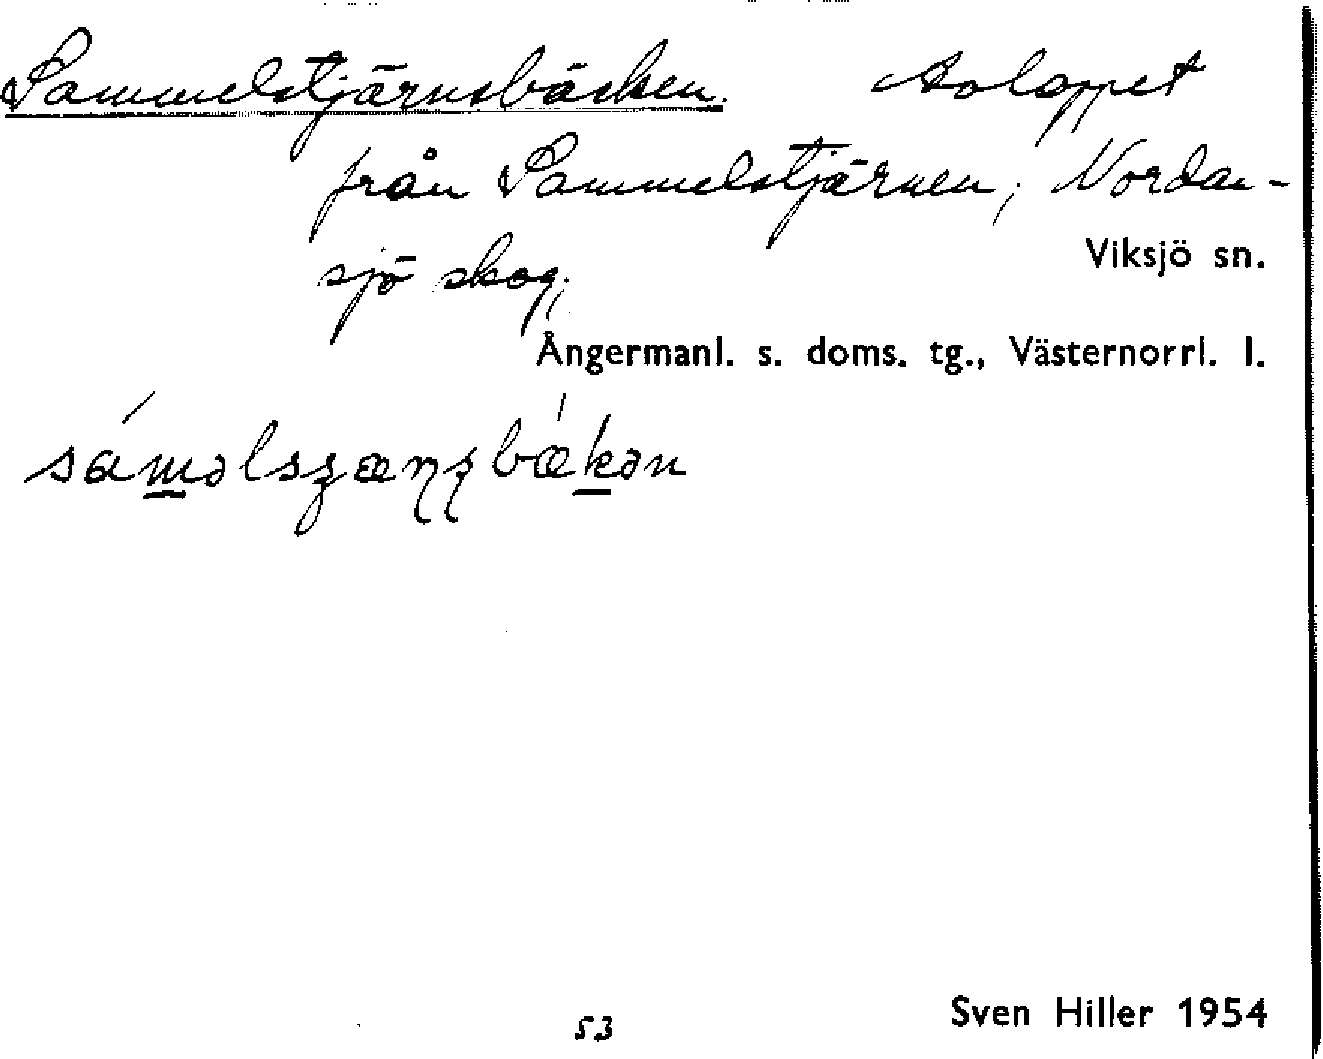 Sammelstjärnsbäcken. Avloppet
från Sammelstjärnen, Nordan-
sjö skog,
Viksjö sn.
Ångermanl. s. doms. tg., Västernorrl. l.
Sven Hiller 1954
53